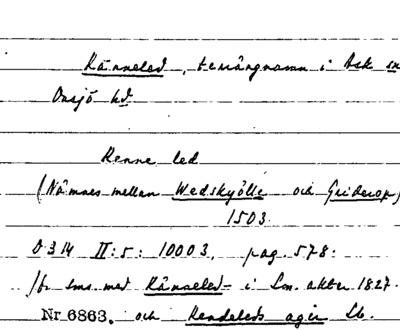 Känneled, terrängnamn i Ask sn
Onsjö hd
Kenne led
(Nämnes mellan Wedskyölle och Griderop)
1503.
D 314 II:5: 10003, pag. 578.
Jfr sms. med Känneled- i Lm. akter 1827.
Nr 6863. och Kendeleds agir Sb.